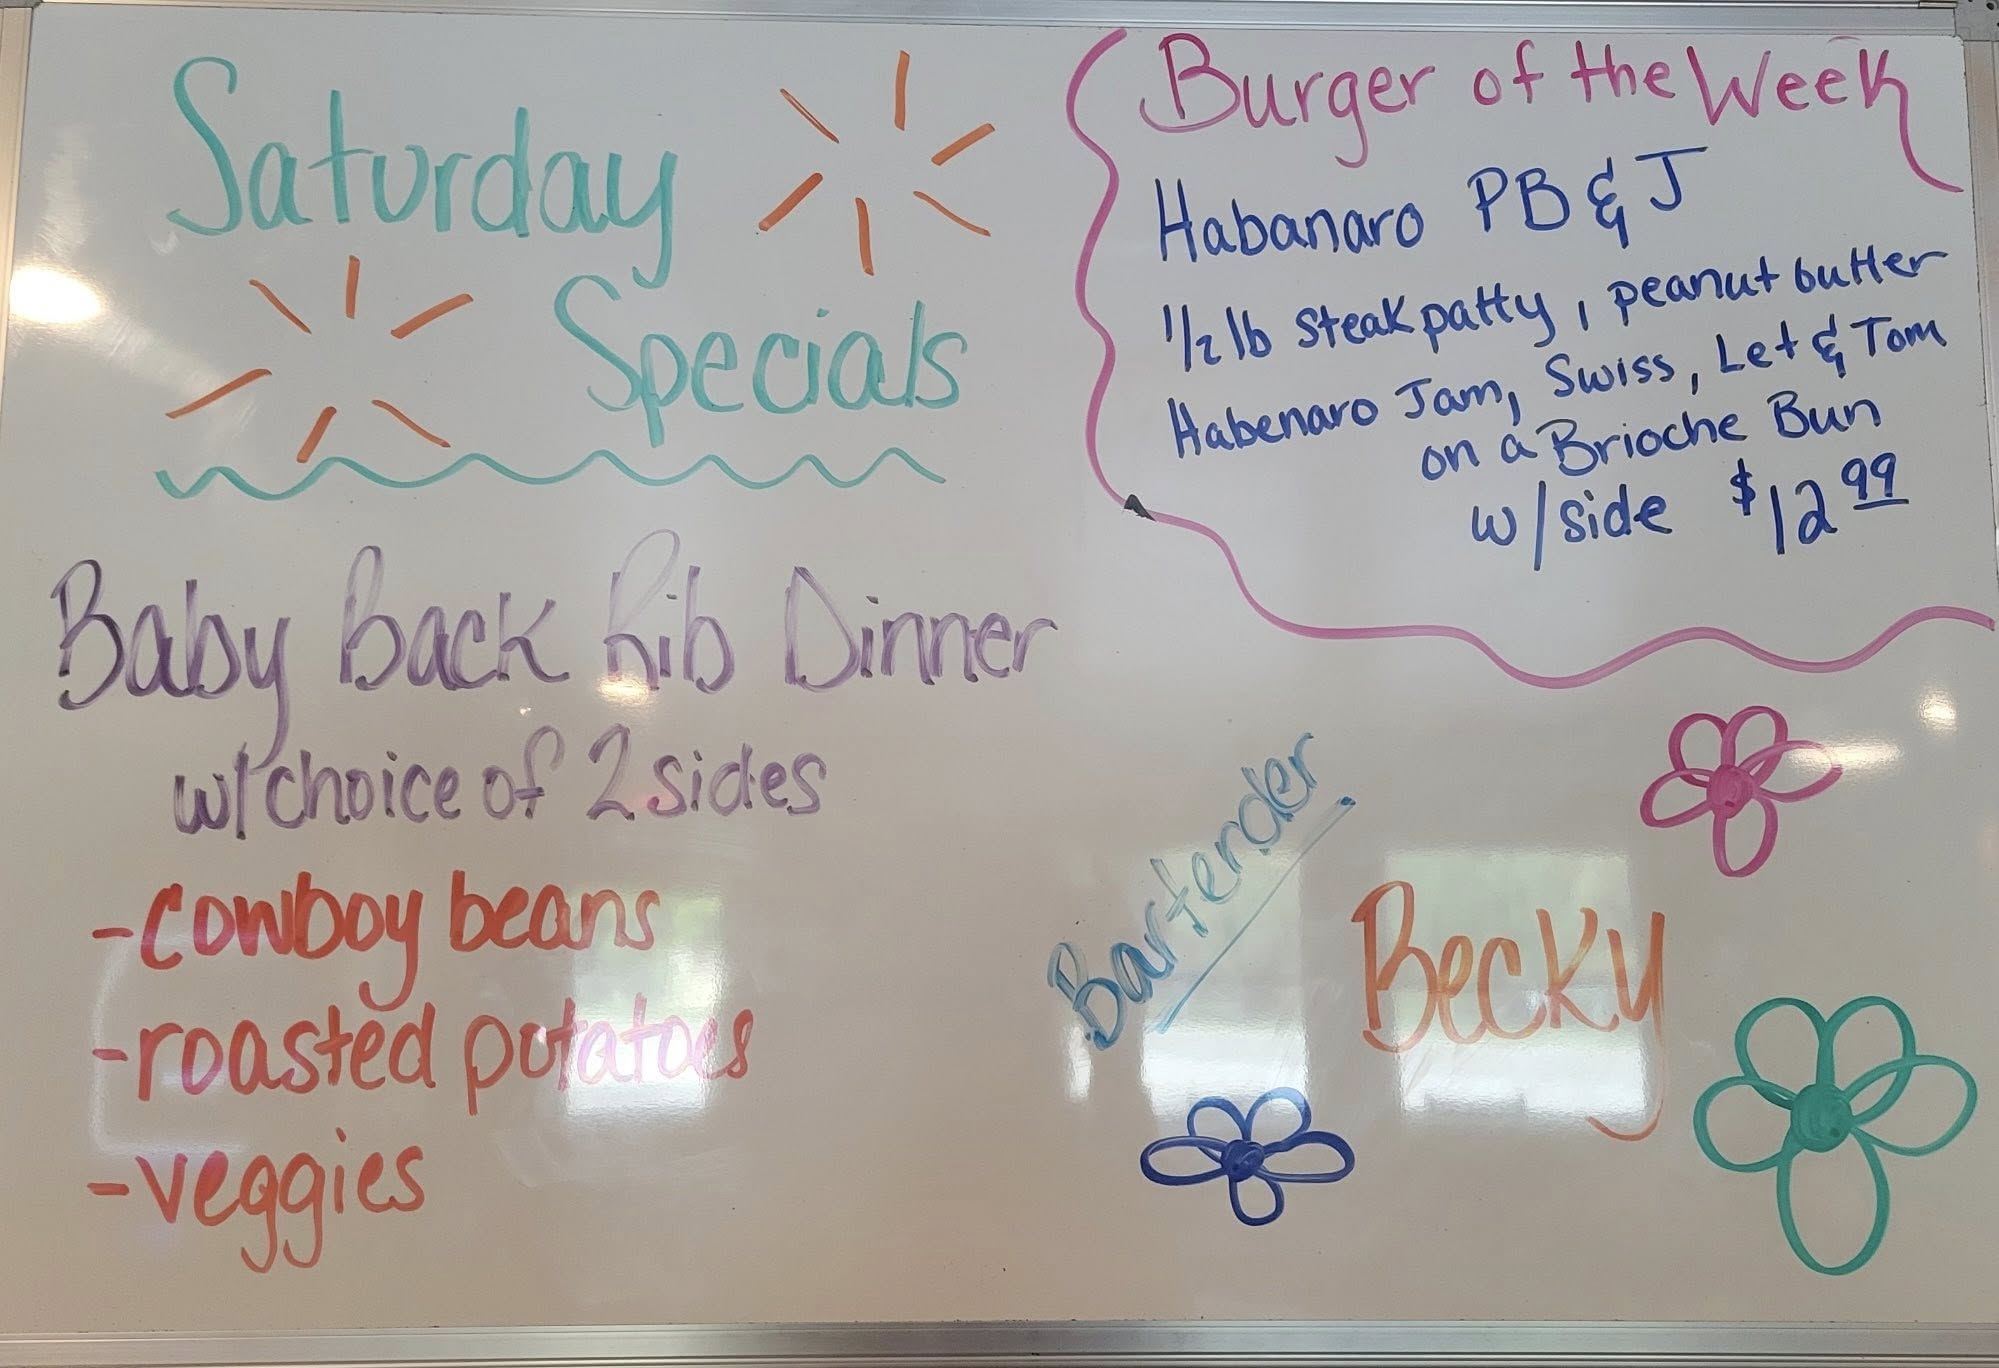 Saturday
Specials
Baby Back Rib Dinner
w/choice of 2 sides
-cowboy beans
-roasted potatoes
-veggies
Burger of the Week
Habanaro PB & J
1/2 lb steak patty, peanut butter
Habenaro Jam, Swiss, Let & Tom
on a Brioche Bun
w/side $12.99
Bartender
Becky